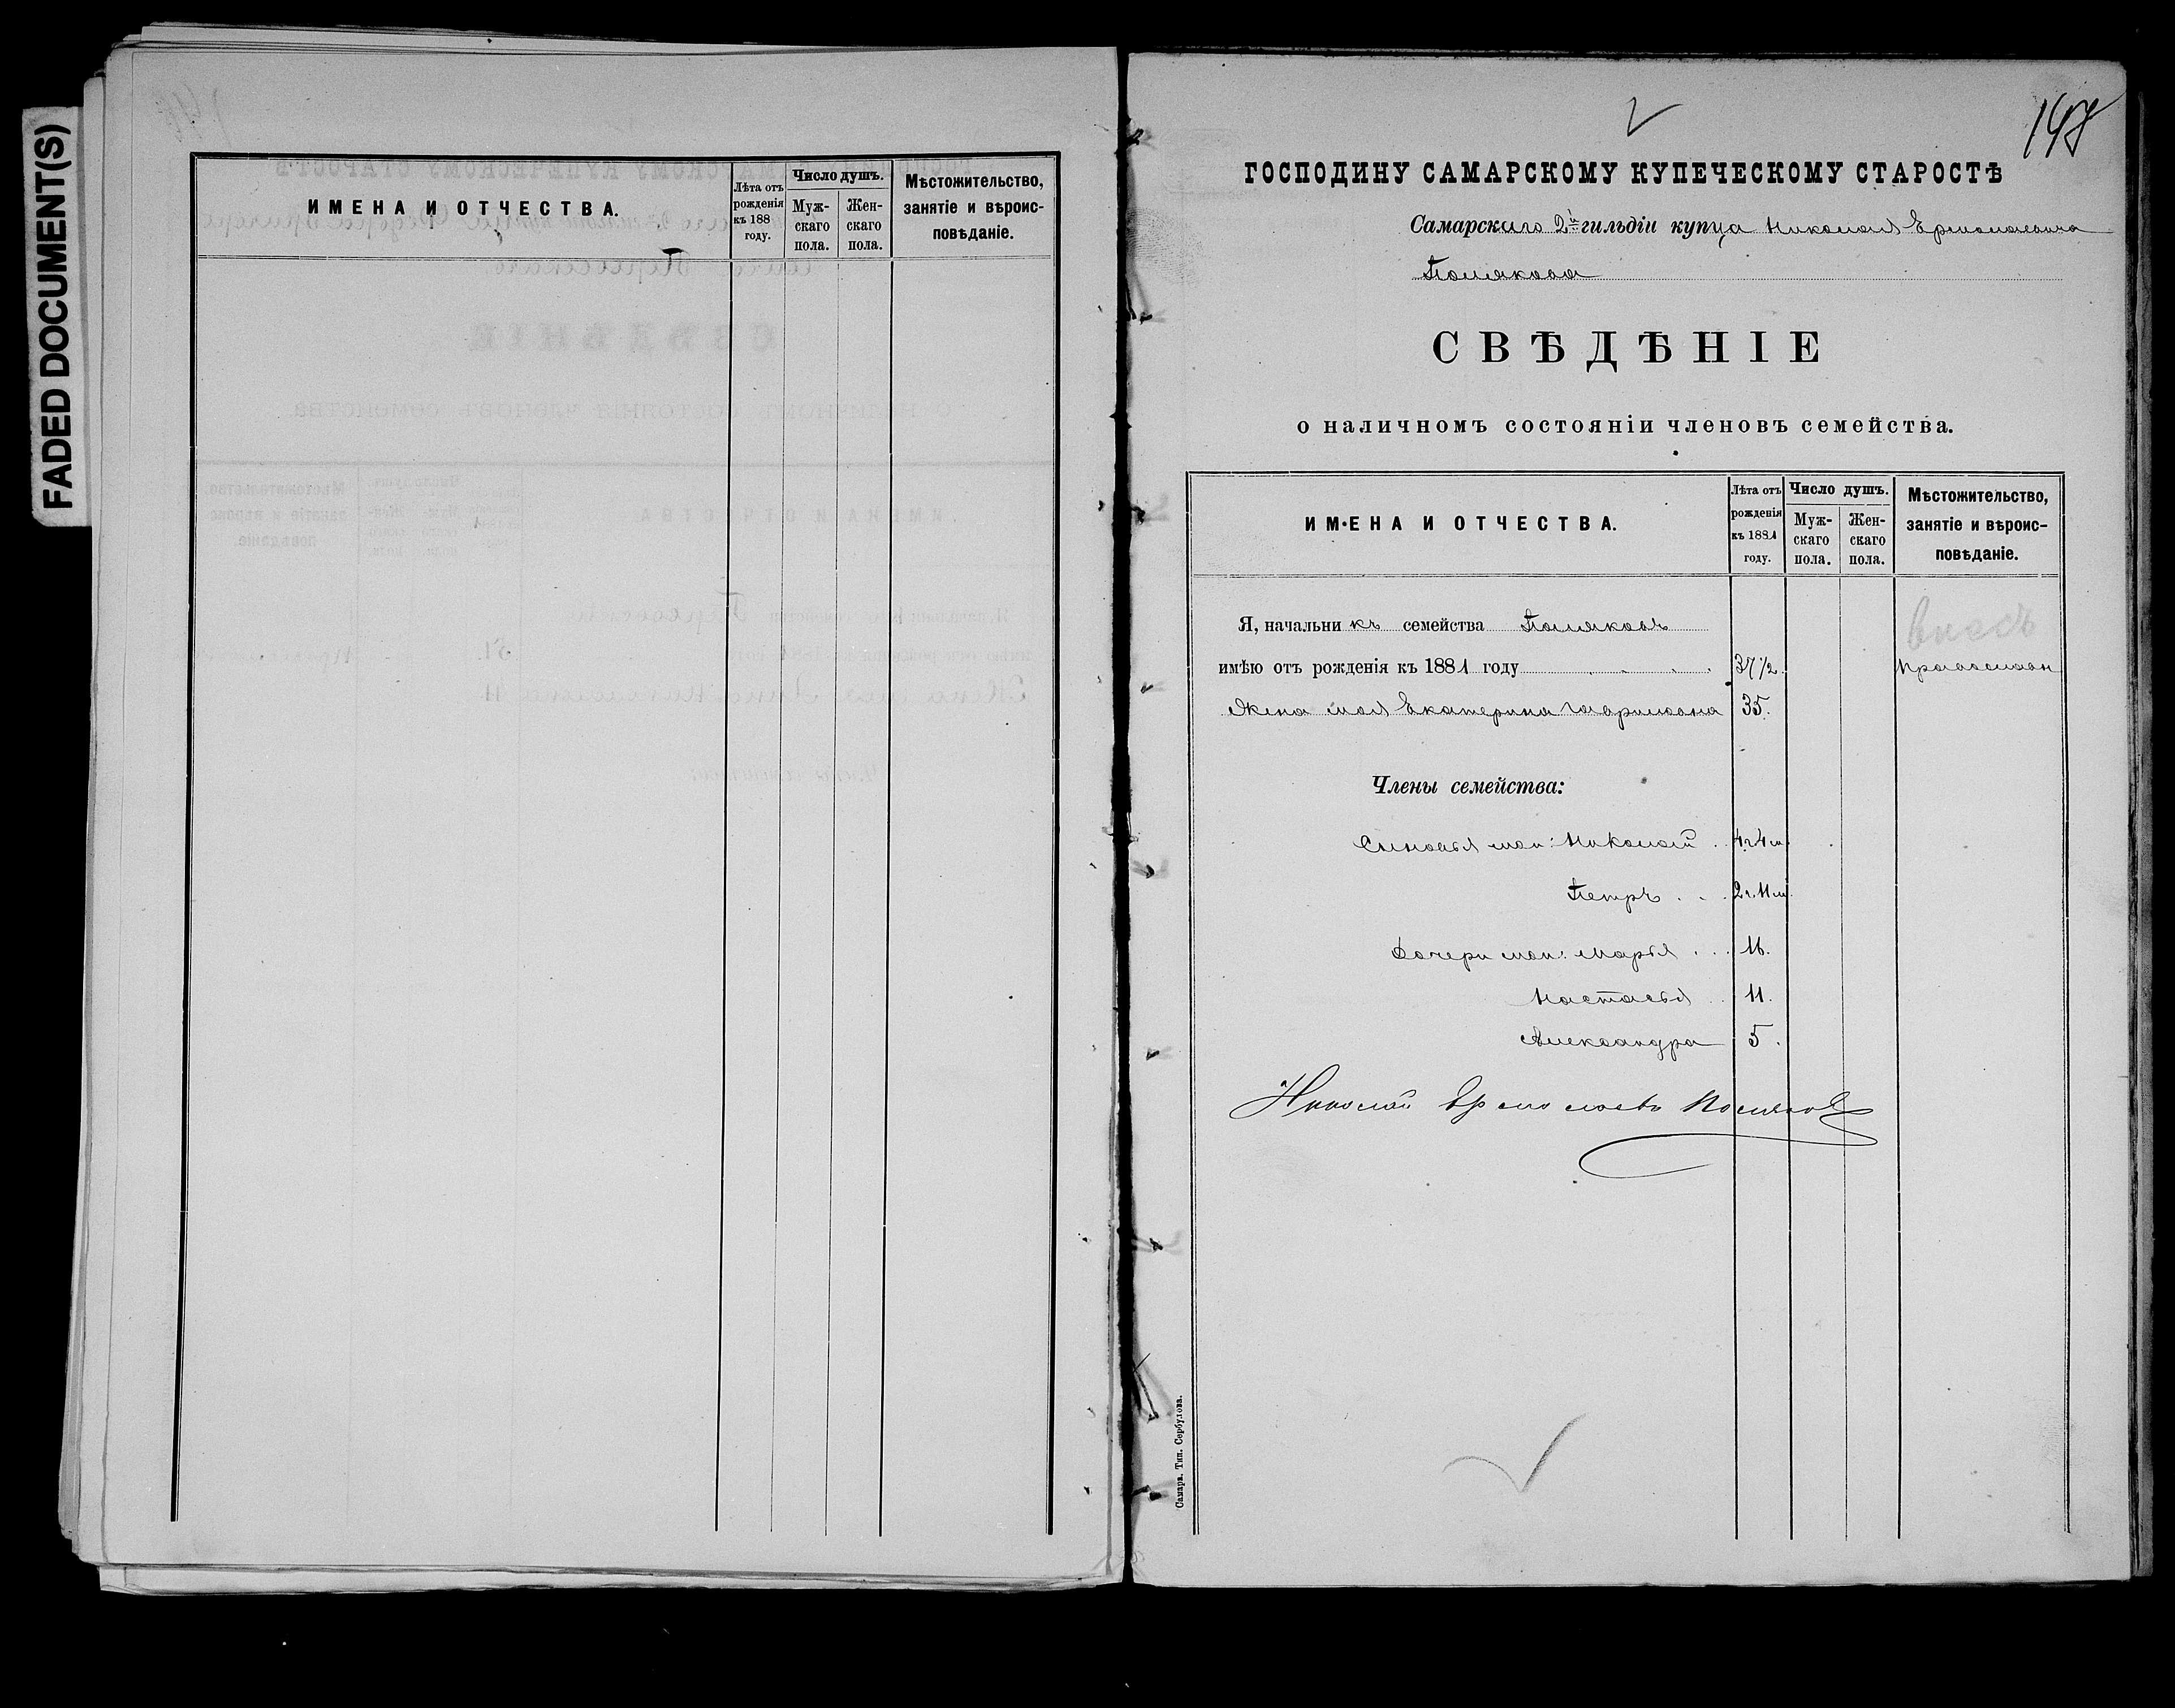 FADED DOCUMENT(S)
ИМЕНА И ОТЧЕСТВА.
Лѣта отъ рожденія къ 188 году.
Число душъ.
Муж-скаго пола.
Жен-скаго пола.
Мѣстожительство, занятіе и вѣроис-повѣданіе.
147
ГОСПОДИНУ САМАРСКОМУ КУПЕЧЕСКОМУ СТАРОСТѢ
Самарскаго 2й гильдіи купца Николая Ермолаевича
Полякова
СВѢДѢНІЕ
о наличномъ состояніи членовъ семейства.
ИМЕНА И ОТЧЕСТВА.
Лѣта отъ рожденія къ 1881 году.
Число душъ.
Муж-скаго пола.
Жен-скаго пола.
Мѣстожительство, занятіе и вѣроис-повѣданіе.
Я, начальникъ семейства Поляковъ
имѣю отъ рожденія къ 1881 году 37½. Православн
Жена моя Екатерина Гавриловна 35.
Члены семейства:
Сыновья мои: Николай 4 г 4 м.
Петръ 2 г. 11 м.
Дочери мои: Марья 16.
Настасья 11.
Александра 5.
Николай Ермолаевъ Поляковъ
Самара. Тип. Сербулова.